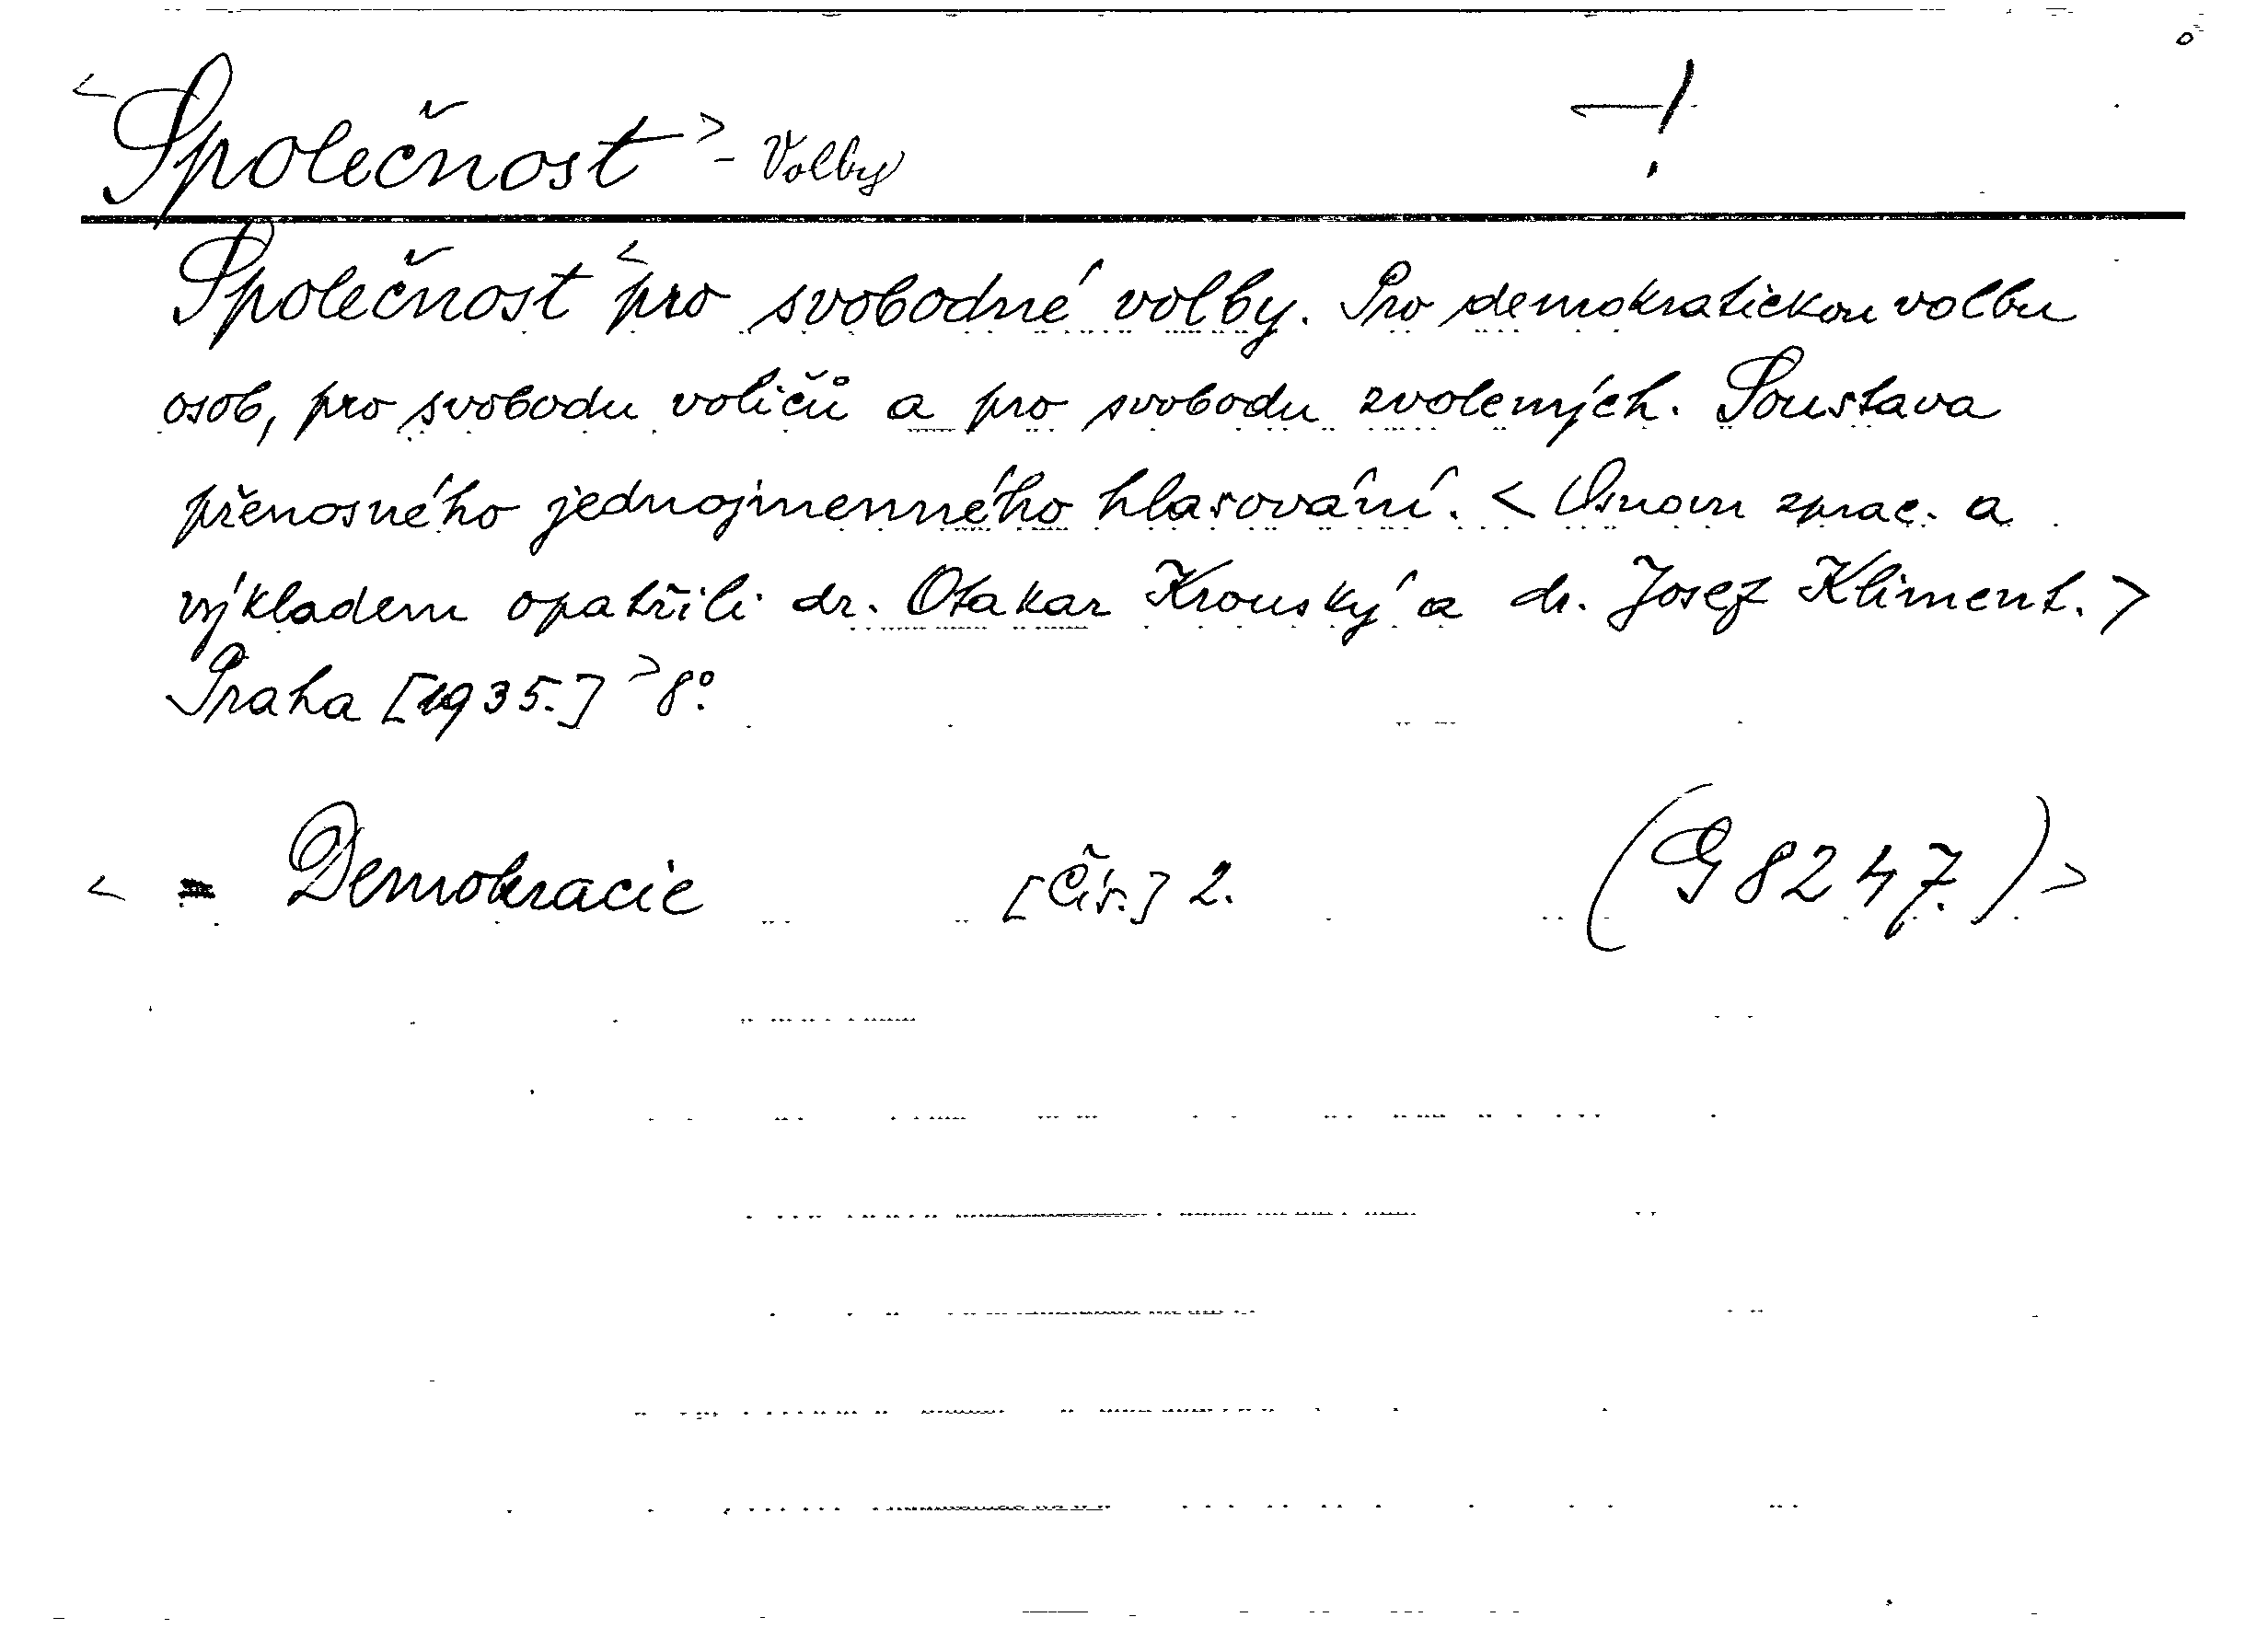 <Společnost> - Volby —!
Společnost <pro svobodné volby. Pro demokratickou volbu
osob, pro svobodu voličů a pro svobodu zvolených. Soustava
přenosného jednojmenného hlasování. <Osnovu zprac. a
výkladem opatřili dr. Otakar Krouský a dr. Josef Kliment.>
Praha [1935.]> 8°.
< = Demokracie [Čís.] 2. (G 8247.)>